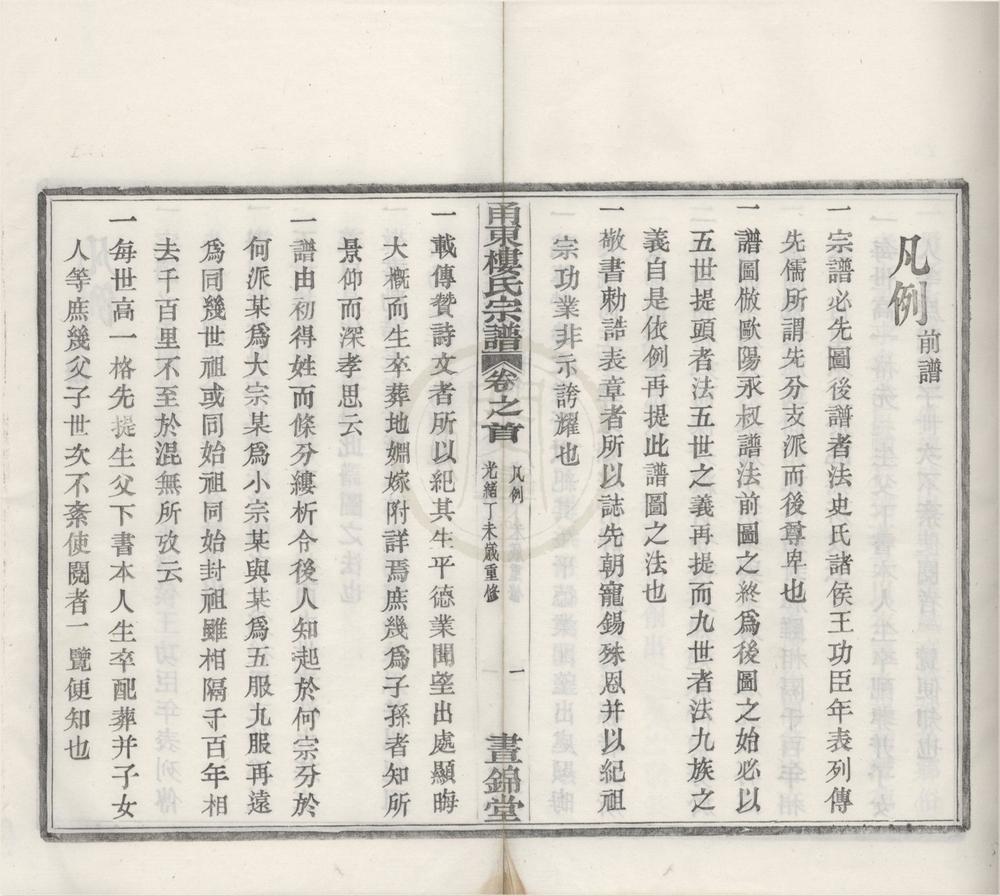 凡例 前譜
一宗譜必先圖後譜者法史氏諸侯王功臣年表列傳
先儒所謂先分支派而後尊卑也
譜圖倣歐陽永叔譜法前圖之終爲後圖之始必以
五世提頭者法五世之義再提而九世者法九族之
義自是依例再提此譜圖之法也
一敬書勅誥表章者所以誌先朝寵錫殊恩并以紀祖
宗功業非示誇耀也
甬東樓氏宗譜 卷之首 凡例 光緒丁未歲重修 一 晝錦堂
一載傳贊詩文者所以紀其生平德業聞望出處顯晦
大槪而生卒葬地婣嫁附詳焉庶幾爲子孫者知所
景仰而深孝思云
一譜由初得姓而條分縷析令後人知起於何宗分於
何派某爲大宗某爲小宗某與某爲五服九服再遠
爲同幾世祖或同始祖同始封祖雖相隔千百年相
去千百里不至於混無所攷云
一每世高一格先提生父下書本人生卒配葬并子女
人等庶幾父子世次不紊使閱者一覽便知也